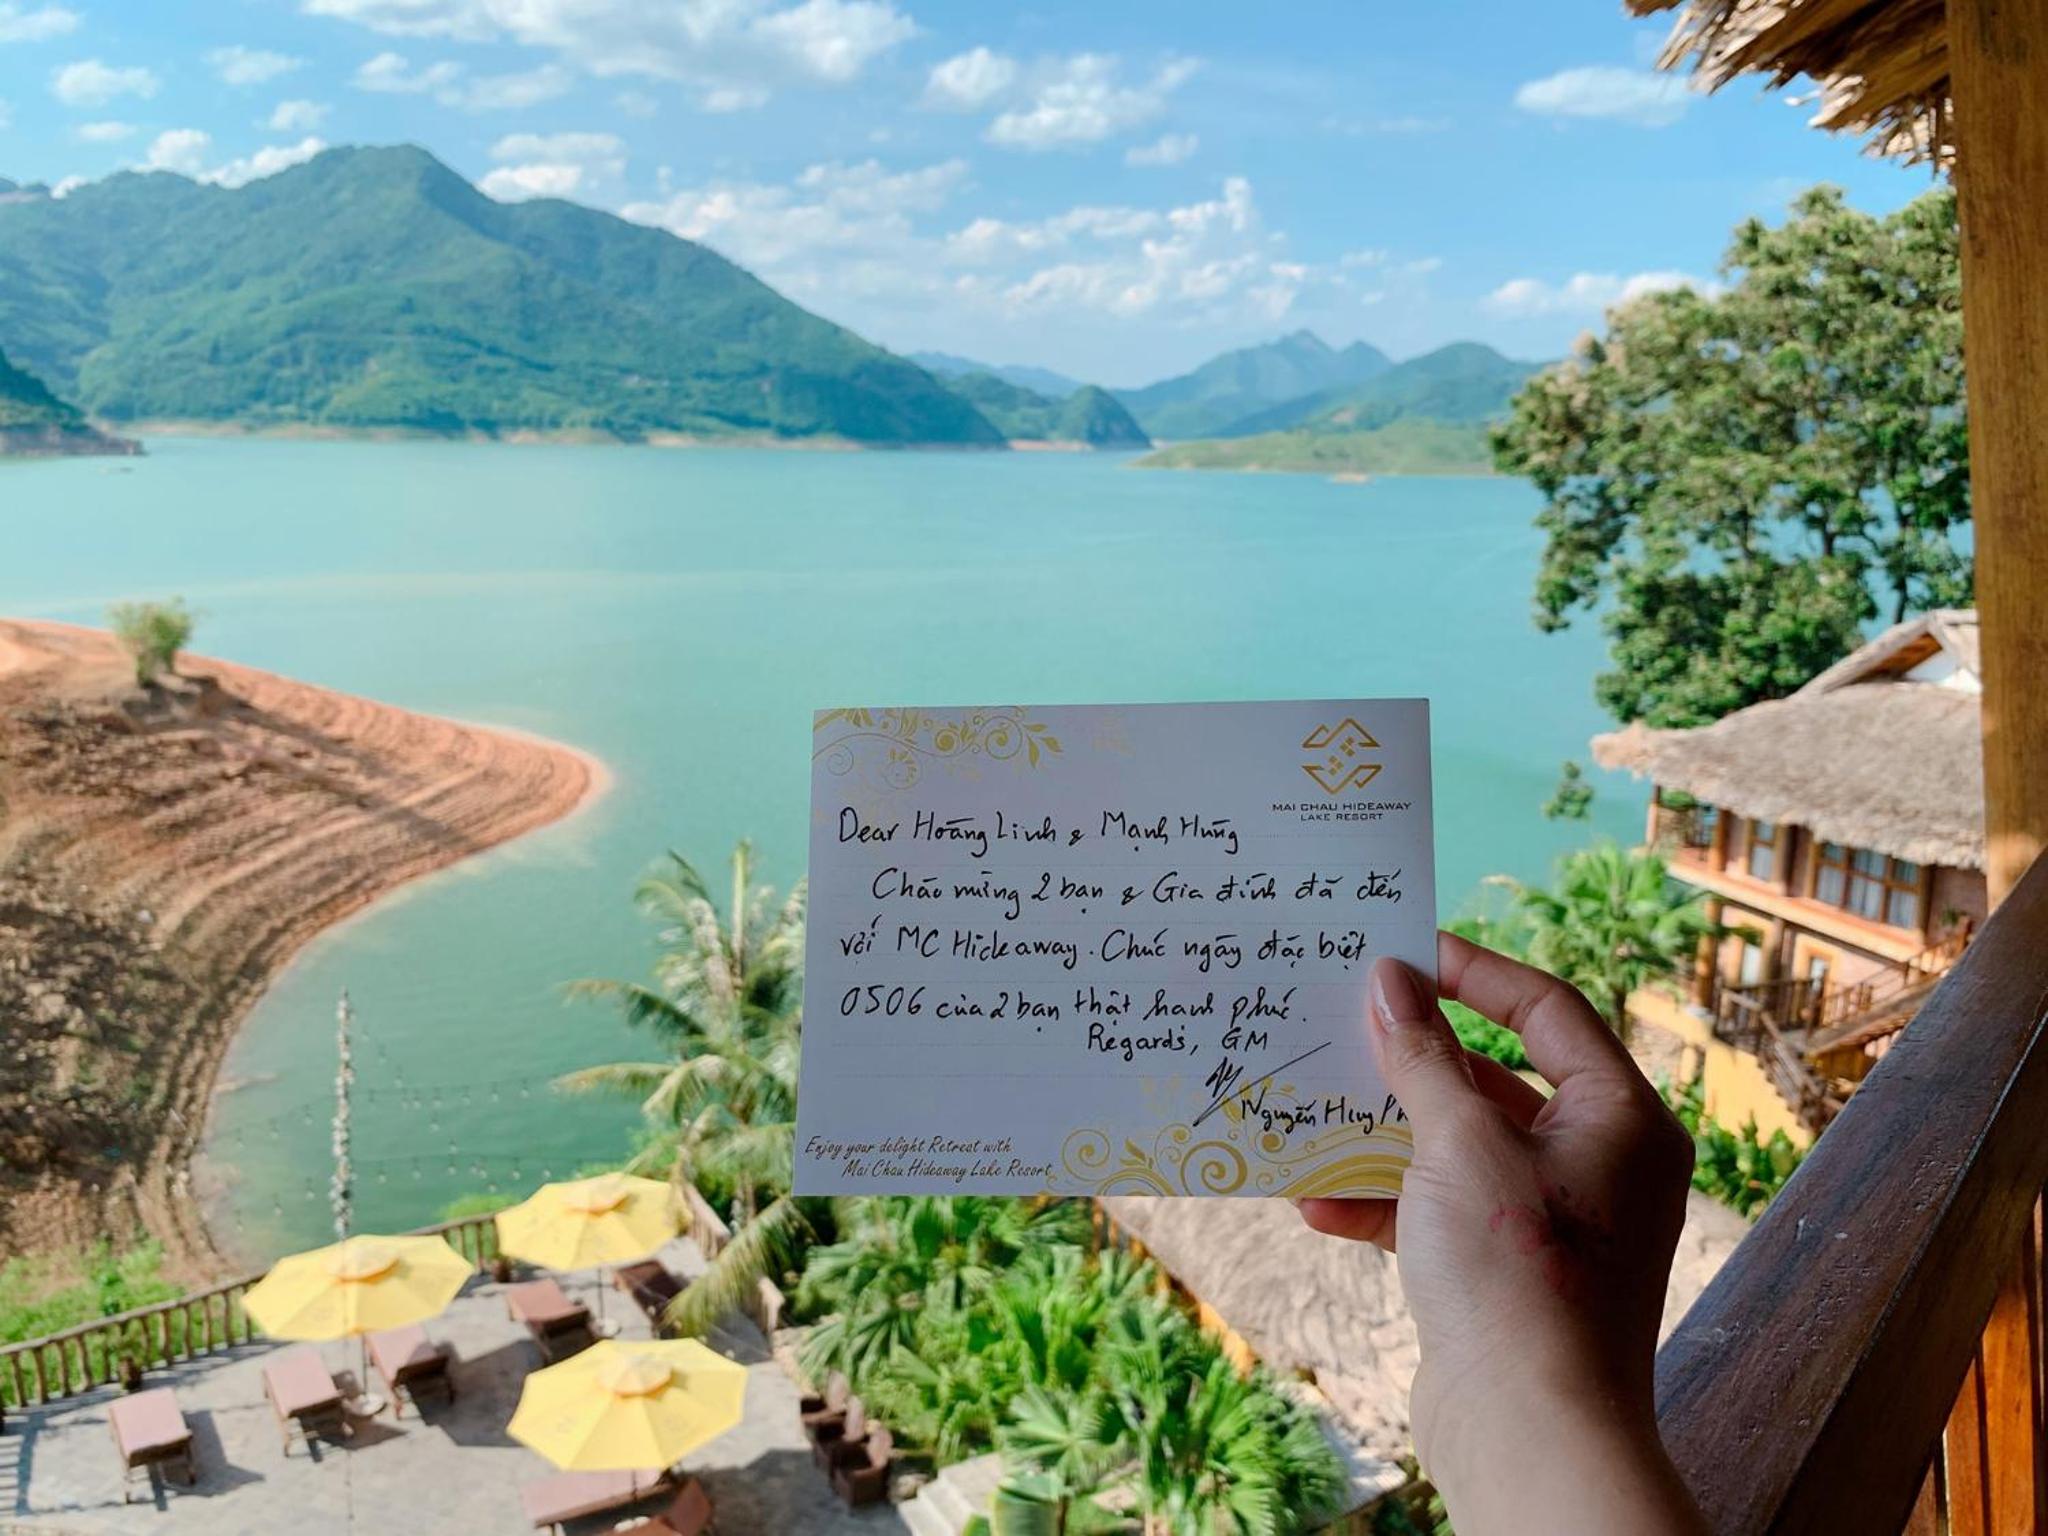 MAI CHAU HIDEAWAY
LAKE RESORT
Dear Hoàng Linh & Mạnh Hùng
Chào mừng 2 bạn & Gia đình đã đến
với MC Hideaway. Chúc ngày đặc biệt
0506 của 2 bạn thật hạnh phúc.
Regards, GM
Nguyễn Huy
Enjoy your delight Retreat with
Mai Chau Hideaway Lake Resort